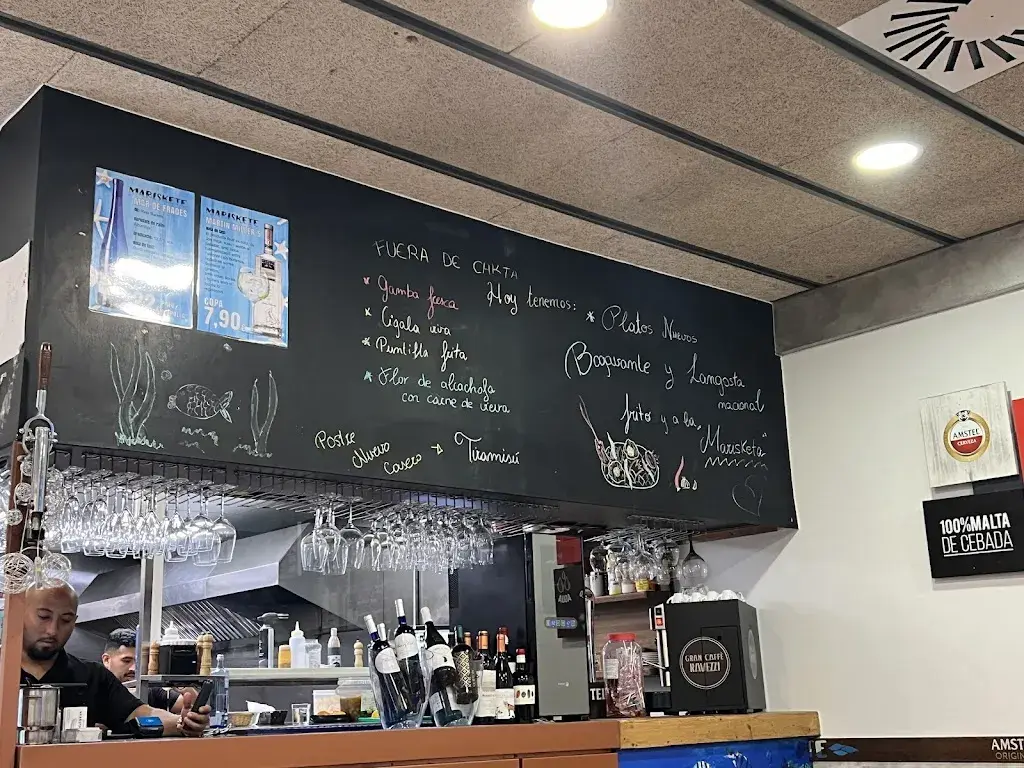 MARISKETE
MAR DE FRADES
MARISKETE
MARTIN MILLER'S
COPA
7,90
FUERA DE CARTA
* Gamba fresca
* Cigala viva
* Puntilla frita
* Flor de alcachofa
con carne de vieira
Postre
Nuevo
Casero → Tiramisú
Hoy tenemos: * Platos Nuevos
Bogavante y Langosta
nacional
frito y a la,
"Marisketa"
AMSTEL
CERVEZA
100%MALTA
DE CEBADA
GRAN CAFFÈ
RAVEZZI
AMST
ORIGIN